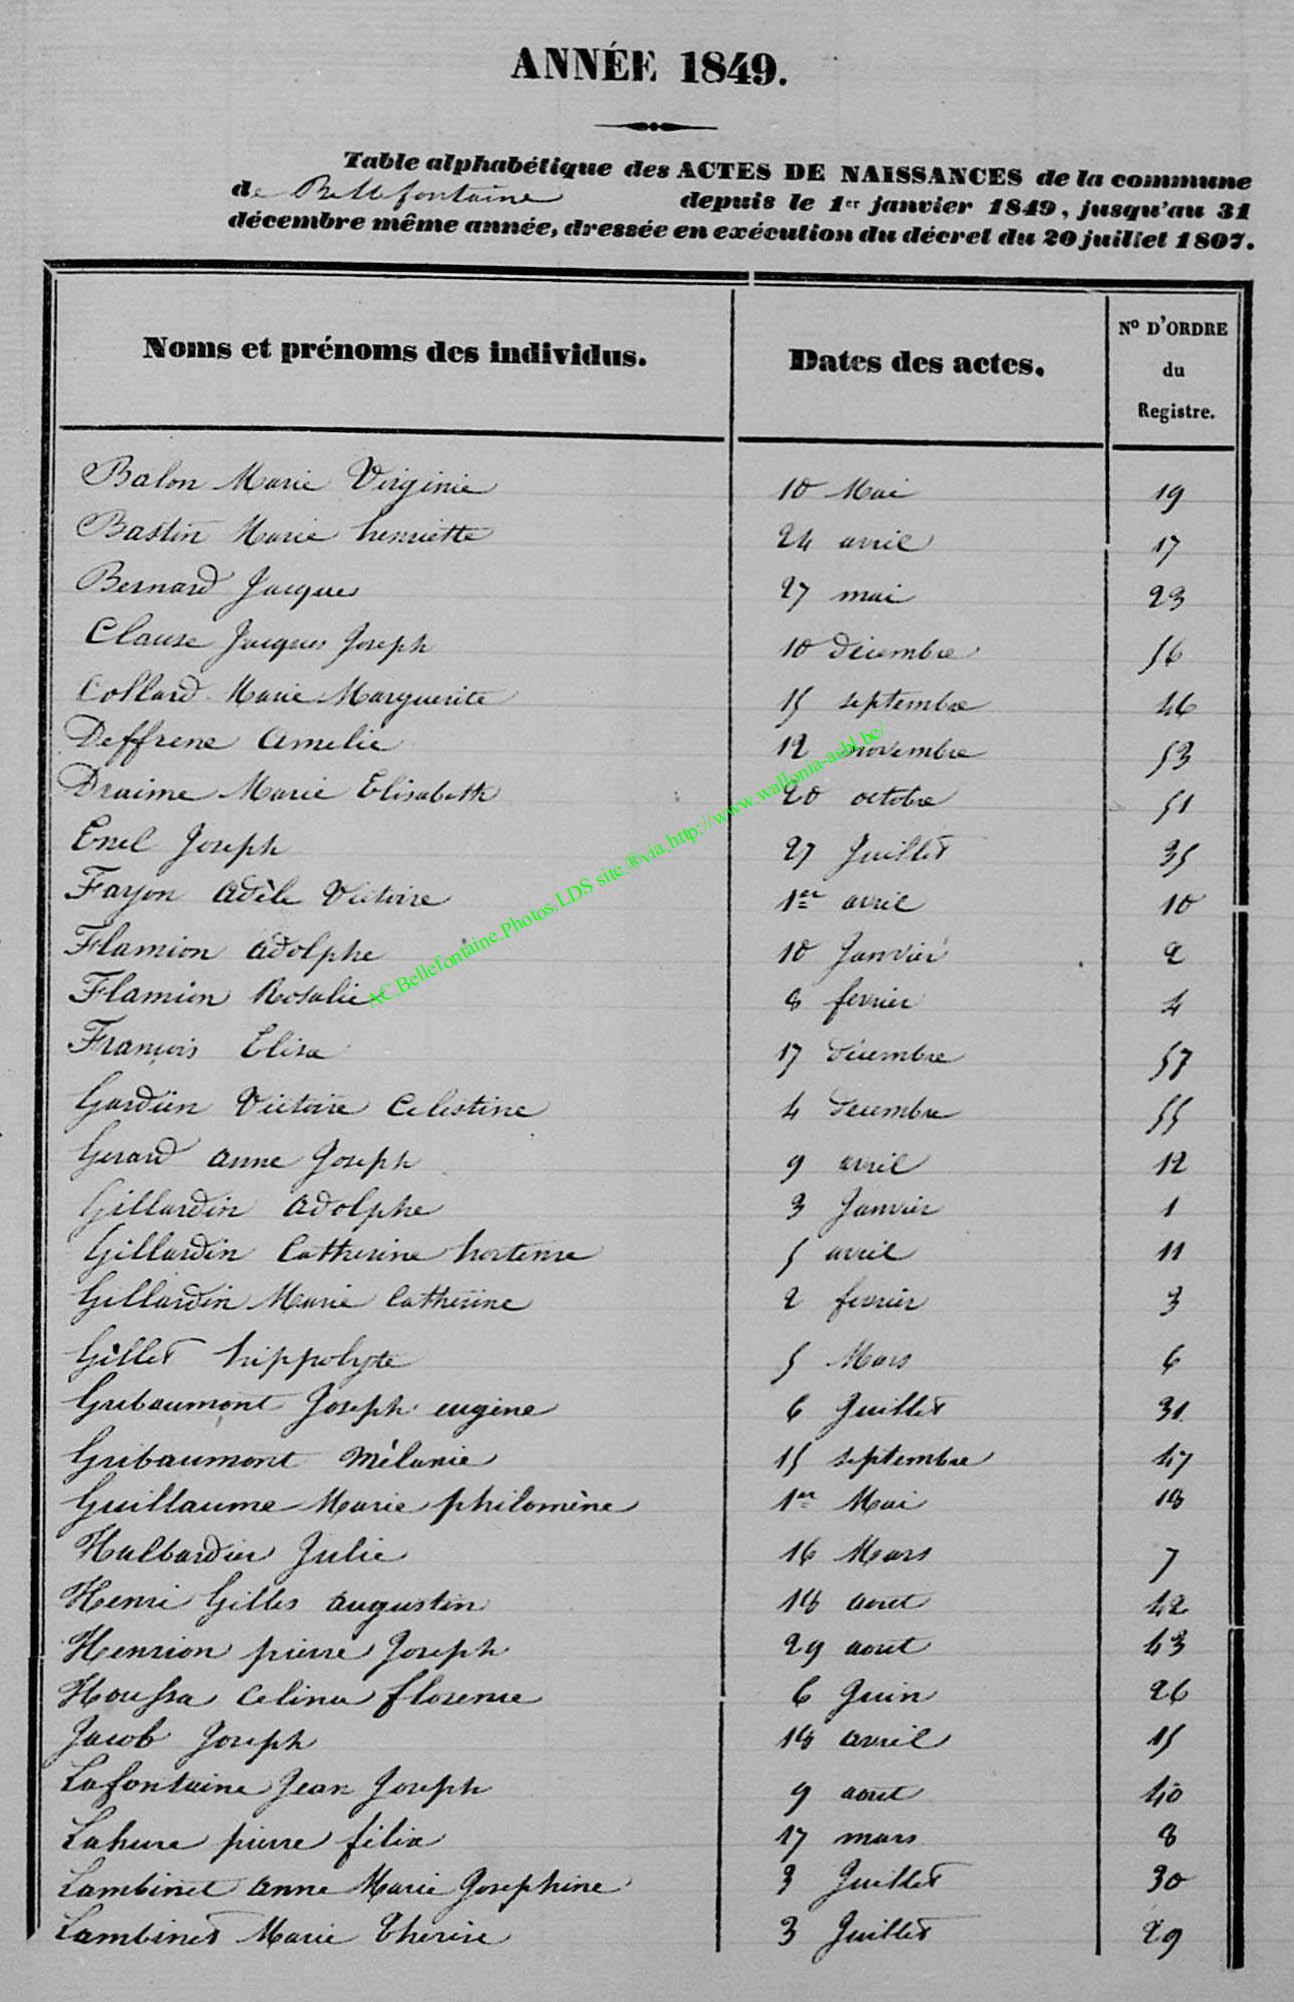 ANNÉE 1849.
Table alphabétique des ACTES DE NAISSANCES de la commune
de Bellefontaine depuis le 1er janvier 1849, jusqu'au 31
décembre même année, dressée en exécution du décret du 20 juillet 1807.
Noms et prénoms des individus. Dates des actes. No D'ORDRE du Registre.
Balon Marie Virginie 10 Mai 19
Bastin Marie henriette 24 avril 17
Bernard Jacques 27 mai 23
Clause Jacques Joseph 10 décembre 56
Collard Marie Marguerite 15 septembre 46
Deffrene Amelie 12 novembre 53
Draime Marie Elisabeth 20 octobre 51
Enel Joseph 27 Juillet 35
Fayon Adèle Victoire 1er avril 10
Flamion Adolphe 10 Janvier 2
Flamion Rosalie 8 fevrier 4
François Elisa 17 décembre 57
Gardien Victoire Celestine 4 decembre 55
Gerard anne Joseph 9 avril 12
Gillardin Adolphe 3 Janvier 1
Gillardin Catherine hortense 5 avril 11
Gillardin Marie Catherine 2 fevrier 3
Gillet hippolyte 5 Mars 6
Gribaumont Joseph eugène 6 Juillet 31
Gribaumont Mélanie 15 septembre 47
Guillaume Marie philomène 1er Mai 18
Halbardier Julie 16 Mars 7
Henri Gilles augustin 18 aout 42
Henrion pierre Joseph 29 aout 43
Houssa Celina florence 6 Juin 26
Jacob Joseph 18 avril 15
Lafontaine Jean Joseph 9 aout 40
Lahure pierre félix 17 mars 8
Lambinet anne Marie Josephine 3 Juillet 30
Lambinet Marie Thérèse 3 Juillet 29
AC.Bellefontaine.Photos.LDS site.®via.http://www.wallonia-asbl.be/